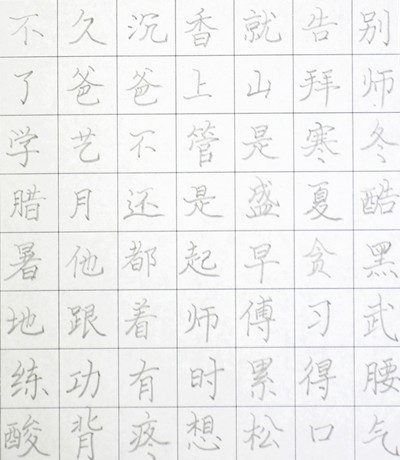 不久沉香就告别
了爸爸上山拜师
学艺不管是寒冬
腊月还是盛夏酷
暑他都起早贪黑
地跟着师傅习武
练功有时累得腰
酸背疼想松口气